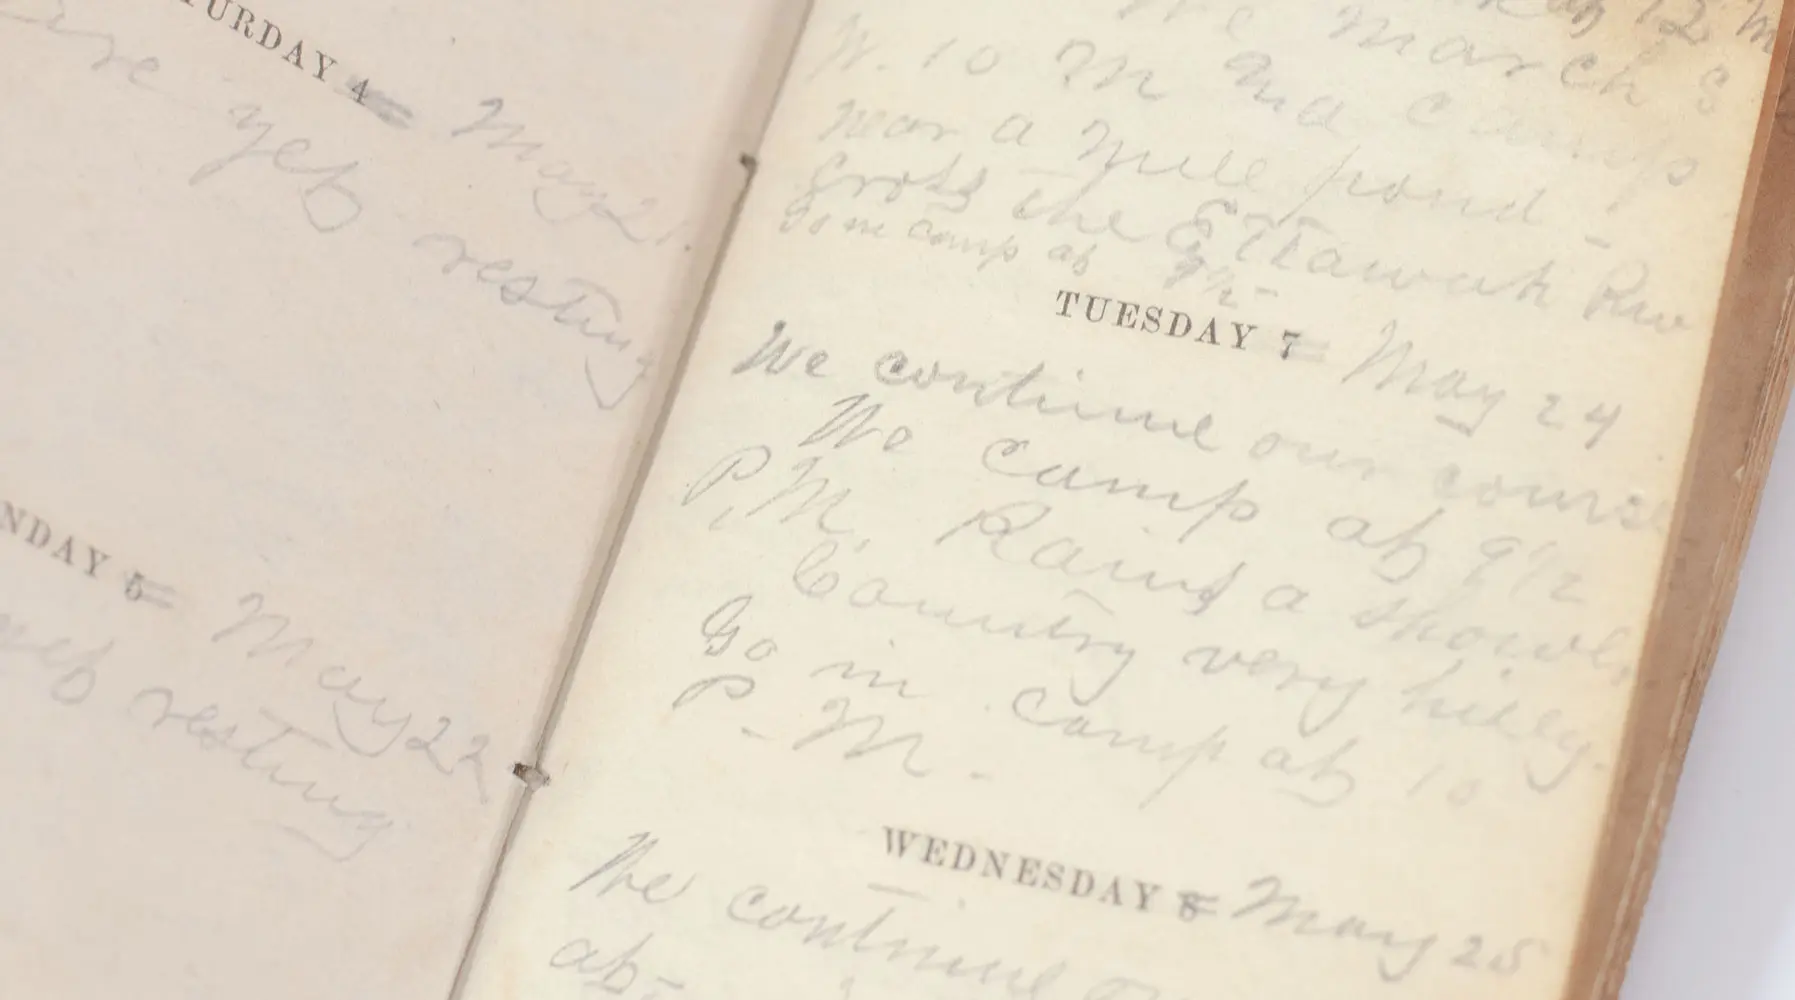 TURDAY 4 May 21.
yet resting
NDAY 5 May 22
yet resting
12 M
We march S
W. 10 M and camp
near a mill pond -
the Ettawah Riv
Go in camp at 9½
TUESDAY 7 May 24
We continue our course
We camp at 9½
P.M. Rains a shower
Country very hilly.
Go in camp at 10
P.M.
WEDNESDAY 8 May 25
We continue
at